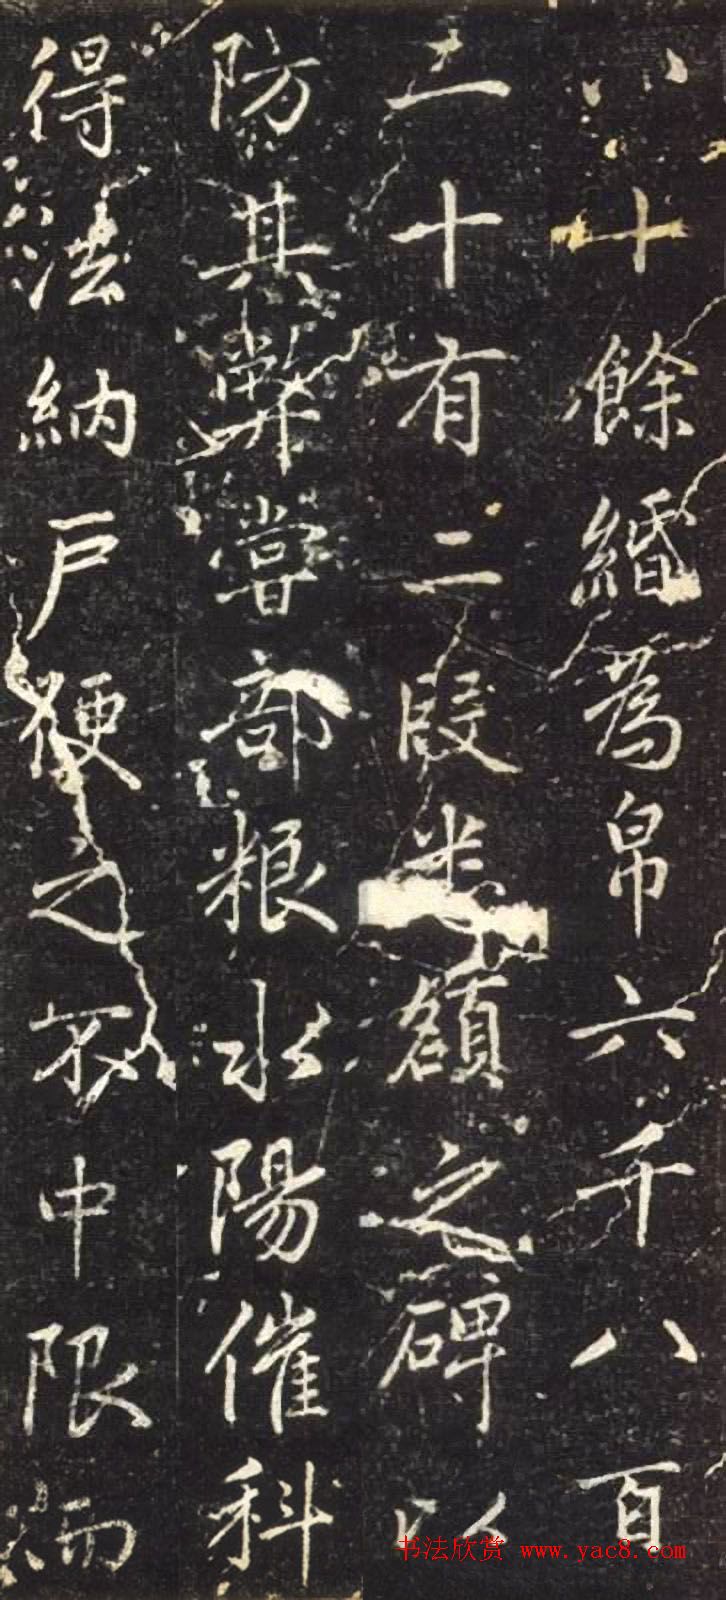 八十餘緡為帛六千八百
二十有二段米額之碑以
防其弊嘗部粮水陽催科
得法納戶便之不中限而
书法欣赏 www.yac8.com